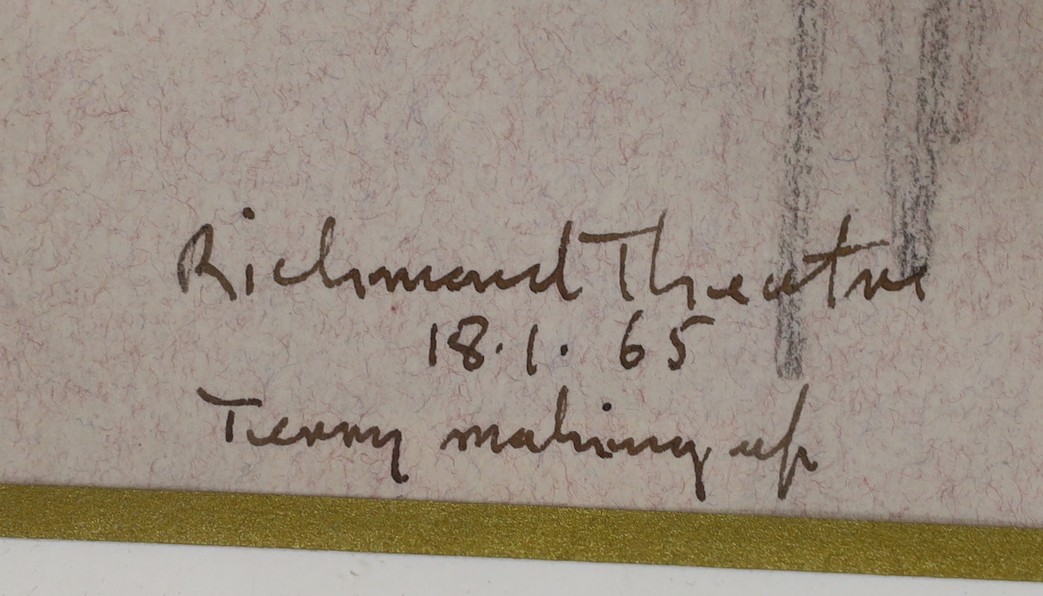 Richmond Theatre
18.1.65
Terry making up